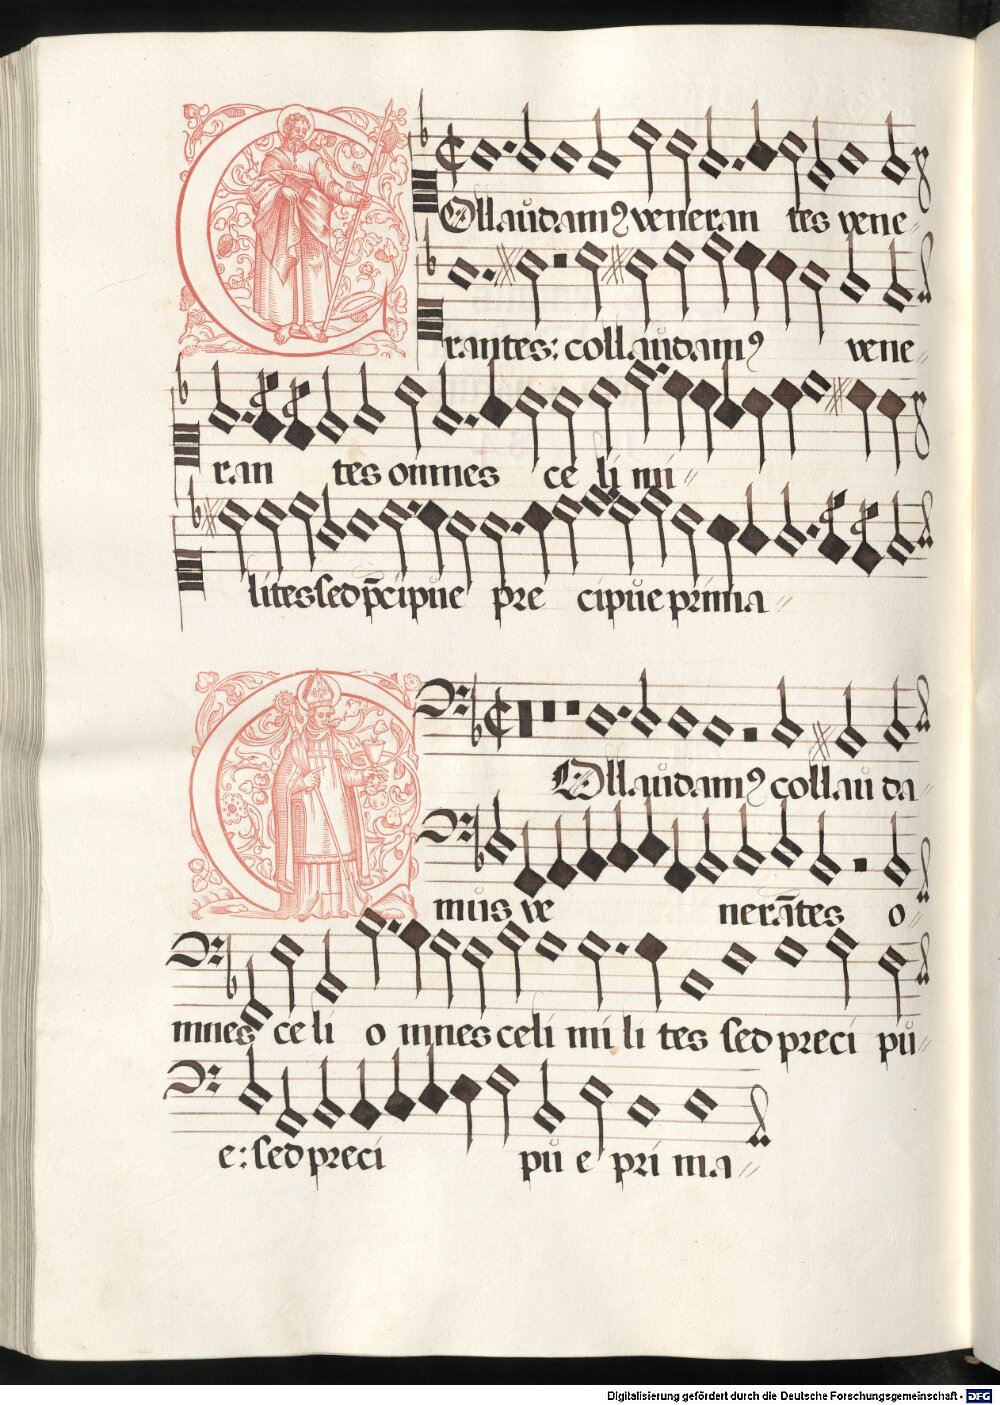 COllaudamꝰ veneran tes vene
rantes: collaudamꝰ vene
ran tes omnes ce li mi
lites sed p̄cipue pre cipue prima
COllaudamꝰ collau da
mus ve nerātes o
mnes celi o mnes celi mi li tes sed preci pu
e: sed preci pu e pri ma
Digitalisierung gefördert durch die Deutsche Forschungsgemeinschaft - DFG